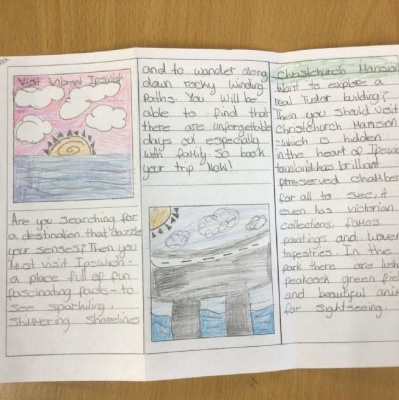 Visit Vibrant Ipswich
Are you searching for
a destination that dazzle
your senses? Then you
Must visit Ipswich -
a place full of fun
fascinating facts - to
see sparkling,
shimmering shorelines
and to wander along
down rocky winding
Paths. You will be
able to find that
there are unforgettable
days out especially
with family. So book
your trip Now!
Christchurch Mansion
Want to explore a
real Tudor building?
Then you should visit
Christchurch Mansion
-which is hidden
in the heart of Ipswich
has brilliant
preserved chambers
for all to see, it
even has Victorian
collections,
paintings and woven
tapestries. In the
park there are lush
peacock green fie
and beautiful ani
for sightseeing.